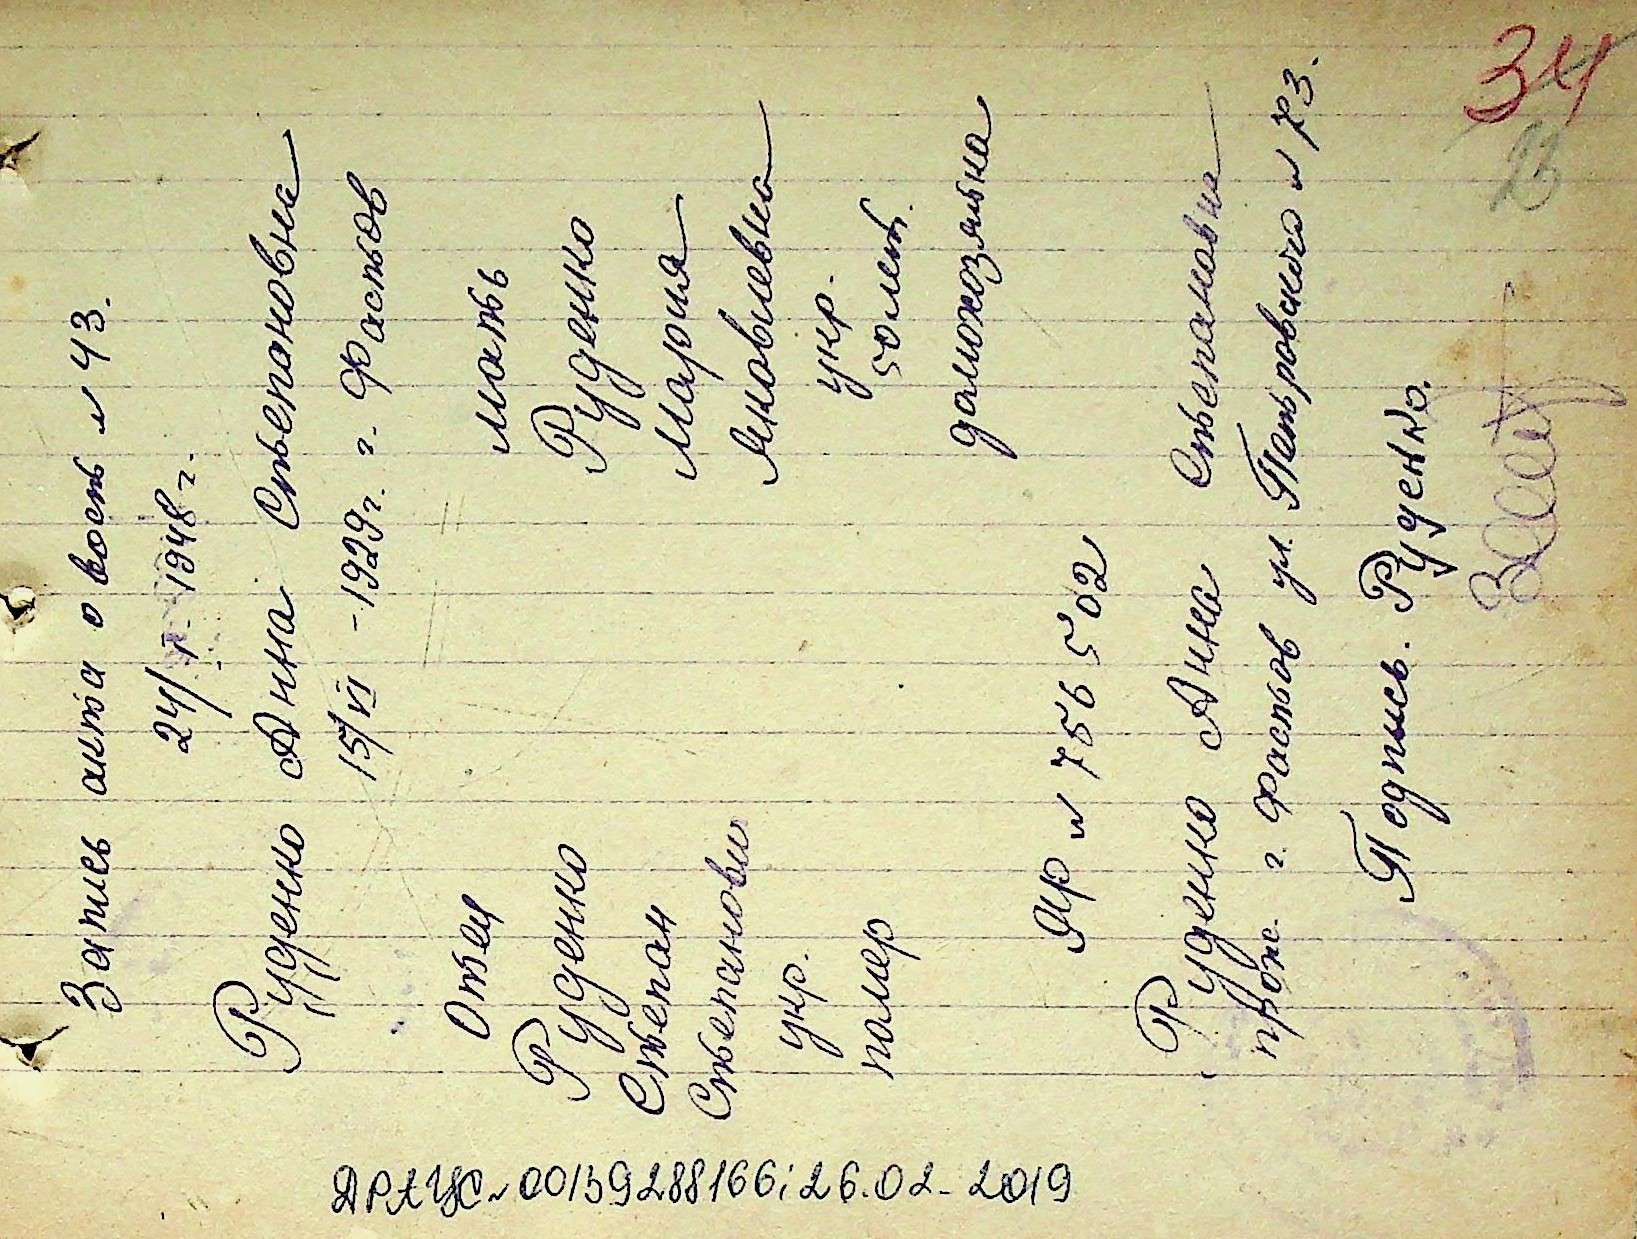 34
23
Запись акта о восст № 43.
24/II. 1948 г.
Руденко Анна Степановна
15/VI - 1929 г. г. Фастов
Отец
Руденко
Степан
Степанови
укр.
помер
мать
Руденко
Мария
Яковлевна
укр.
50 лет.
домохозяйка
ЯР № 756502
Руденко Анна Степановна
прож. г. Фастов ул. Петровского № 73.
Подпись. Руденко.
ДРАЦС № 00139288166; 26.02-2019